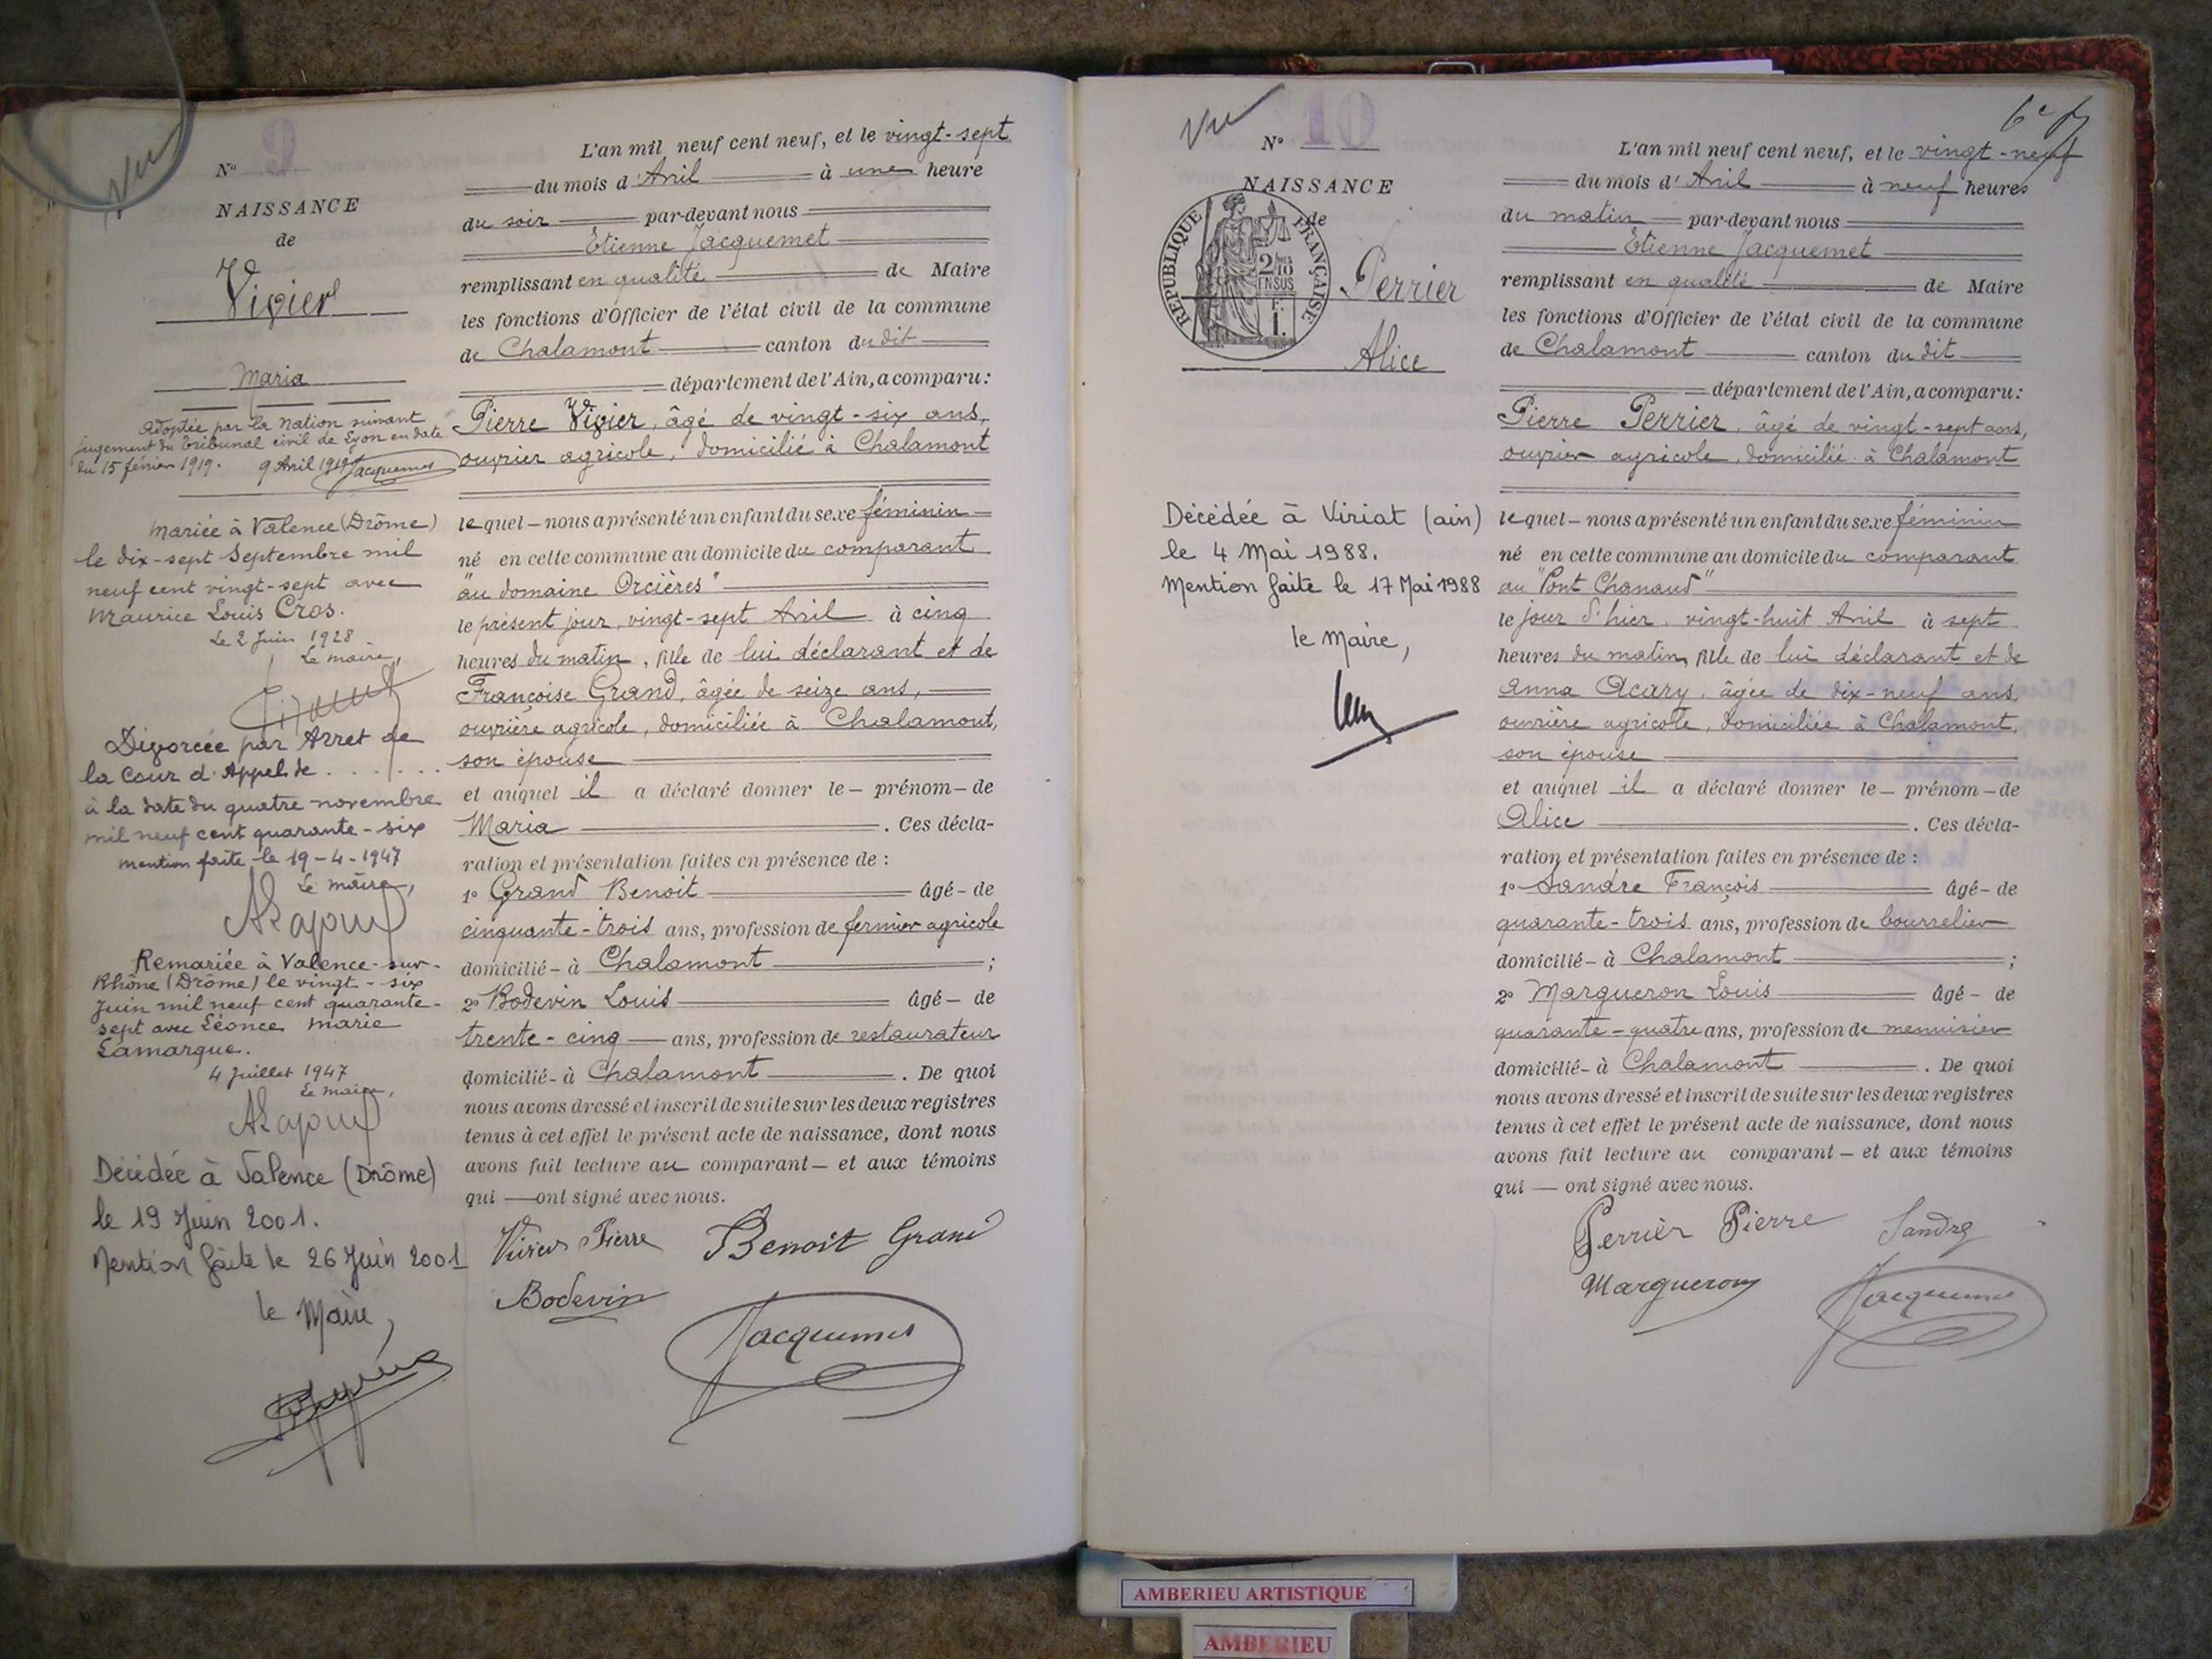 Vu
N° 9
NAISSANCE
de
Vivier
Maria
Adoptée par la Nation suivant
jugement du Tribunal civil de Lyon en date
du 15 février 1919. 9 Avril 1919 Jacquemet
Mariée à Valence (Drôme)
le dix-sept Septembre mil
neuf cent vingt-sept avec
Maurice Louis Cros.
Le 2 Juin 1928
Le maire,
Divorcée par Arret de
la Cour d'Appel de . . . . . . .
à la date du quatre novembre
mil neuf cent quarante-six
mention faite le 19-4-1947
Le maire,
Remariée à Valence-sur-
Rhône (Drôme) le vingt-six
Juin mil neuf cent quarante-
sept avec Léonce Marie
Lamarque.
4 Juillet 1947
Le maire,
Décédée à Valence (Drôme)
le 19 Juin 2001.
Mention faite le 26 Juin 2001
le Maire,
L'an mil neuf cent neuf, et le vingt-sept
du mois d'Avril à une heure
du soir par-devant nous
Etienne Jacquemet
remplissant en qualité de Maire
les fonctions d'Officier de l'état civil de la commune
de Chalamont canton du dit
département de l'Ain, a comparu:
Pierre Vivier, âgé de vingt-six ans,
ouvrier agricole, domicilié à Chalamont
lequel – nous a présenté un enfant du sexe féminin
né en cette commune au domicile du comparant
"au domaine Orcières"
le présent jour, vingt-sept Avril à cinq
heures du matin, fille de lui déclarant et de
Françoise Grand, âgée de seize ans,
ouvrière agricole, domiciliée à Chalamont,
son épouse
et auquel il a déclaré donner le – prénom – de
Maria . Ces décla-
ration et présentation faites en présence de :
1° Grand Benoit âgé – de
cinquante-trois ans, profession de fermier agricole
domicilié – à Chalamont ;
2° Bodevin Louis âgé – de
trente-cinq ans, profession de restaurateur
domicilié – à Chalamont . De quoi
nous avons dressé et inscrit de suite sur les deux registres
tenus à cet effet le présent acte de naissance, dont nous
avons fait lecture au comparant – et aux témoins
qui – ont signé avec nous.
Vivier Pierre Benoit Grand
Bodevin Jacquemet
Vu
N° 10
NAISSANCE
de
REPUBLIQUE FRANÇAISE
2/10
EN SUS
F.
1.
Perrier
Alice
Décédée à Viriat (ain)
le 4 Mai 1988.
Mention faite le 17 Mai 1988
le Maire,
L'an mil neuf cent neuf, et le vingt-neuf
du mois d'Avril à neuf heures
du matin par-devant nous
Etienne Jacquemet
remplissant en qualité de Maire
les fonctions d'Officier de l'état civil de la commune
de Chalamont canton du dit
département de l'Ain, a comparu:
Pierre Perrier, âgé de vingt-sept ans,
ouvrier agricole, domicilié à Chalamont
lequel – nous a présenté un enfant du sexe féminin
né en cette commune au domicile du comparant
au "Pont Chanaud"
le jour d'hier, vingt-huit Avril à sept
heures du matin, fille de lui déclarant et de
Anna Acary, âgée de dix-neuf ans,
ouvrière agricole, domiciliée à Chalamont,
son épouse
et auquel il a déclaré donner le – prénom – de
Alice . Ces décla-
ration et présentation faites en présence de :
1° Sandre François âgé – de
quarante-trois ans, profession de bourrelier
domicilié – à Chalamont ;
2° Margueron Louis âgé – de
quarante-quatre ans, profession de menuisier
domicilié – à Chalamont . De quoi
nous avons dressé et inscrit de suite sur les deux registres
tenus à cet effet le présent acte de naissance, dont nous
avons fait lecture au comparant – et aux témoins
qui – ont signé avec nous.
Perrier Pierre Sandre
Margueron Jacquemet
AMBERIEU ARTISTIQUE
AMBERIEU